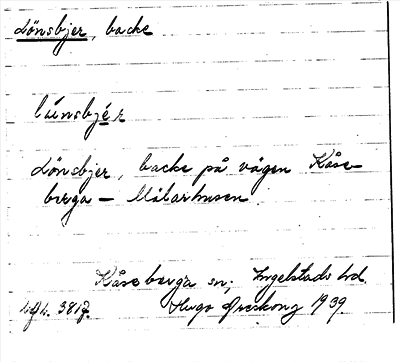 Lönsbjer, backe
lúnsbjér
Lönsbjer, backe på vägen Kåse-
berga – Mälarhusen.
Kåseberga sn; Ingelstads hd.
3817. Hugo Areskoug 1939.